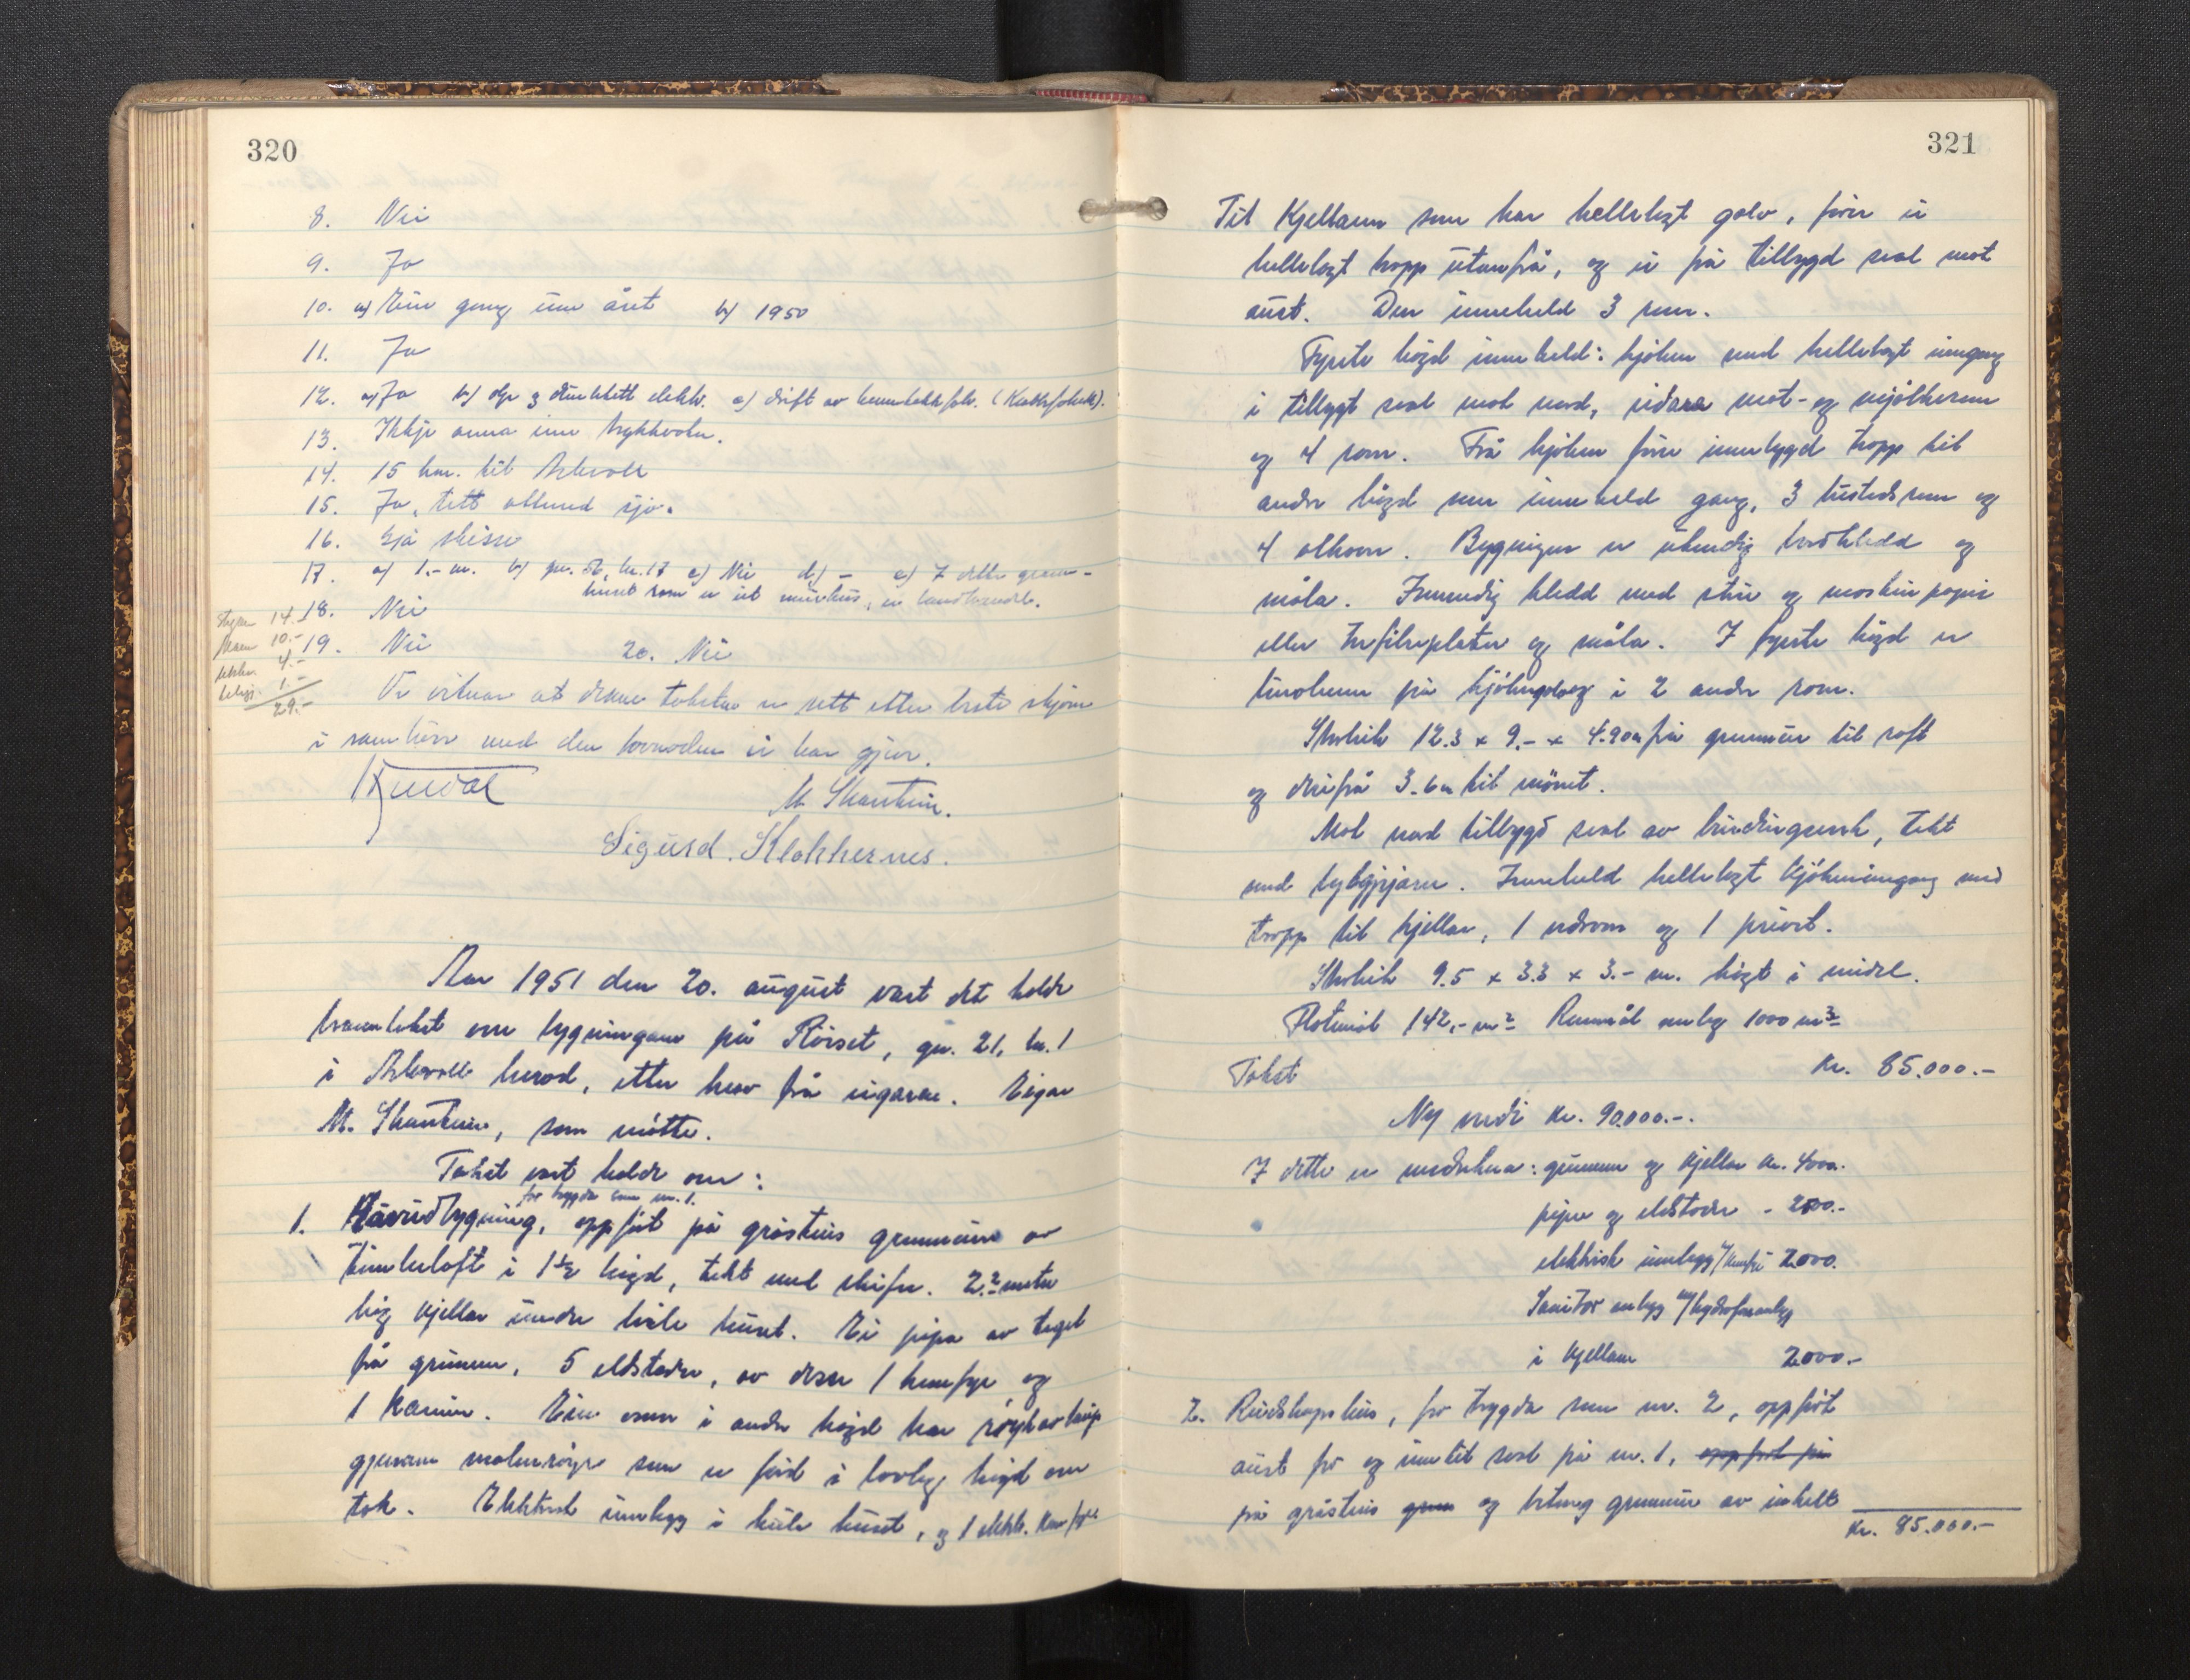 320
8. Nei
9. Ja
10. a) Ein gang um året b) 1950
11. Ja
12. a) Ja b) elektr. c) drift av
13. Ikkje anna enn trykkvatn.
14. 15 km. til Askvoll
15. Ja, tett attmed sjø.
16. Sjå skisse
17. a) 1.- m. b) gn. 56, bn. 17 c) Nei d) - e) I dette
som er eit murhus, er landhandel.
18. Nei
14.-
19. Nei 20. Nei
10.-
4.-
1.-
29.-
Vi vitnar at denne taksten er sett etter beste skjøn
i samhøve med den lovnaden vi har gjeve.
M. Skarstein.
Sigurd Klokkernes.
Aar 1951 den 20. august vart det halde
branntakst over bygningane på Röiset, gn. 21, bn. 1
i Askvoll herad, etter krav frå eigaren. Eigar
M. Skarstein, som møtte.
Takst vart halde over:
før trygda som nr. 1.
1. Hävudbygning, oppført på gråsteins grunnmur av
timberloft i 1½ høgd, tekt med skifer. 2.2 meter
høg kjellar under heile huset. Ei pipa av tegel
frå grunnen, 5 eldstader, av desse 1 komfyr og
1 kamin. Ein omn i andre høgd har røykavlaup
gjenom som er ført i lovleg høgd over
tak. Elektrisk innlegg i heile huset, og 1 elektr. komfyr
321
Til kjellaren som har hellelagt golv, fører ei
hellelagt tropp utanfrå, og ei frå tillbygd sval mot
aust. Den inneheld 3 rom.
Fyrste høgd inneheld: kjøken med hellelagt inngang
i tillbygt sval mot nord, vidare mat- og mjølkerom
og 4 rom. Frå kjøken fører innbygd tropp til
andre høgd som inneheld gang, 3 rom og
4 alkover. Bygningen er utvendig bordkledd og
måla. Innvendig kledd med strie og maskinpapir
eller trefiberplater og måla. I fyrste høgd er
linoleum på kjøkengolv og i 2 andre rom.
Storleik 12.3 x 9.- x 4.90 m frå grunnmur til raft
og derifrå 3.6 m til mønet.
Mot nord tillbygd sval av bindingsverk, tekt
med bylgjejarn. Inneheld hellelagt kjøkeninngang med
tropp til kjellar, 1 vedrom og 1 privet.
Storleik 9.5 x 3.3 x 3.- m. høgt i midel.
Flatemål 142.- m² Rommål omlag 1000 m³
Takst Kr. 85.000.-
Ny verdi kr. 90.000.-.
I dette er medrekna: grunnmur og kjellar kr. 4000.
pipe og eldstader - 2500.-
elektrisk innlegg m/komfyr 2000.
Sanitær anlegg m/hydroforanlegg
i kjellaren 2000.-
2. Reidskapshus, før trygda som nr. 2, oppført
aust for og inntil sval på nr. 1, oppført på
på gråsteins grun og betong grunnmur av enkelt
Kr. 85.000.-